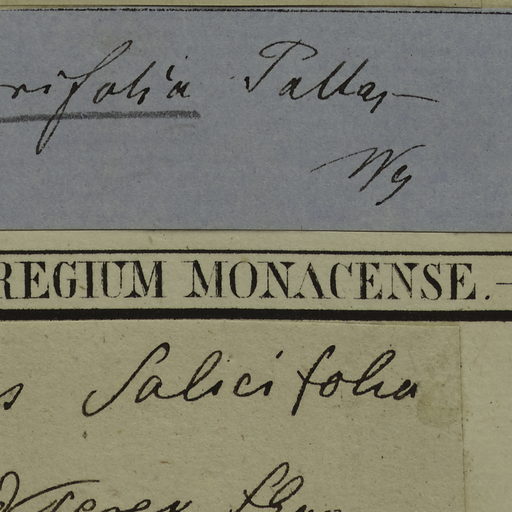 rifolia Pallas
Wg
REGIUM MONACENSE.
s Salicifolia